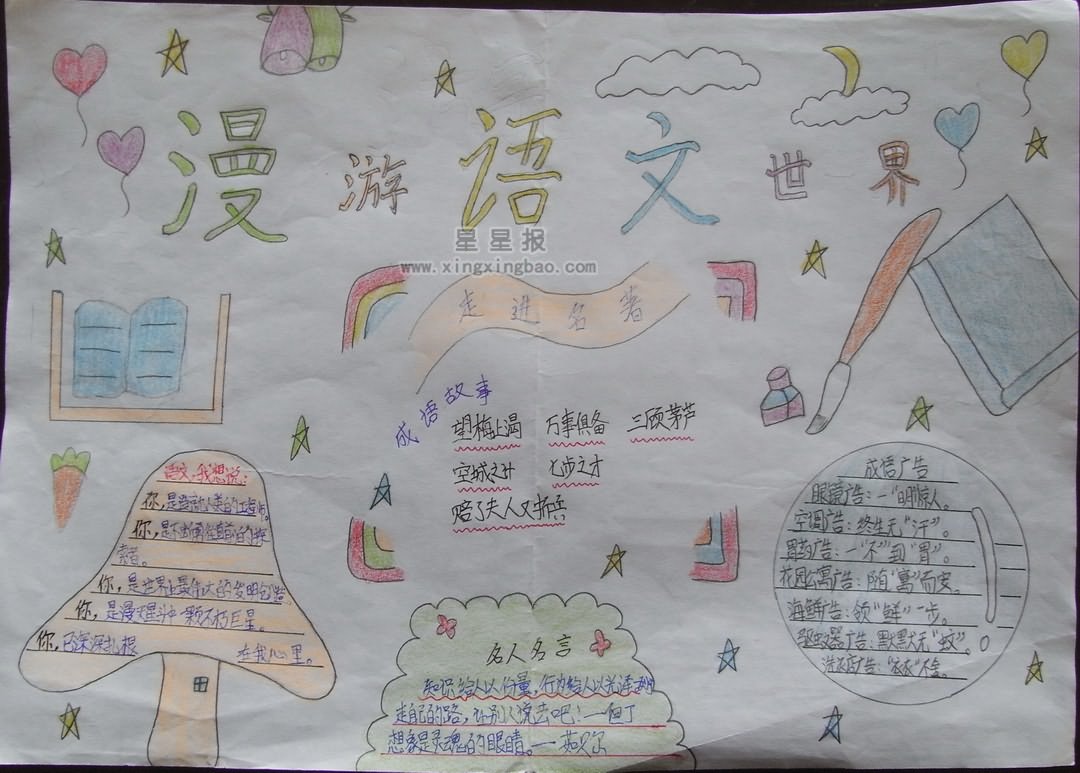 漫游语文世界
星星报
www.xingxingbao.com
走进名著
成语故事
望梅止渴 万事俱备 三顾茅芦
空城之计 七步之才
赔了夫人又折兵
语文,我想说:
你,是造就人类的工程师。
你,是不断勇往直前的探
索者。
你,是世界上最伟大的发明创造。
你,是漫天星斗中一颗不朽巨星。
你,已深深扎根 在我心里。
名人名言
知识给人以份量,行为给人以光泽
走自己的路,让别人说去吧!—但丁
想象是灵魂的眼睛。—
成语广告
眼镜广告:一"明"惊人。
空调广告:终生无"汗"。
胃药广告:一"不"到"胃"。
花园公寓广告:随"寓"而安。
海鲜广告:领"鲜"一步。
驱蚊器广告:默默无"蚊"。
洗衣店广告:"衣衣"不舍。